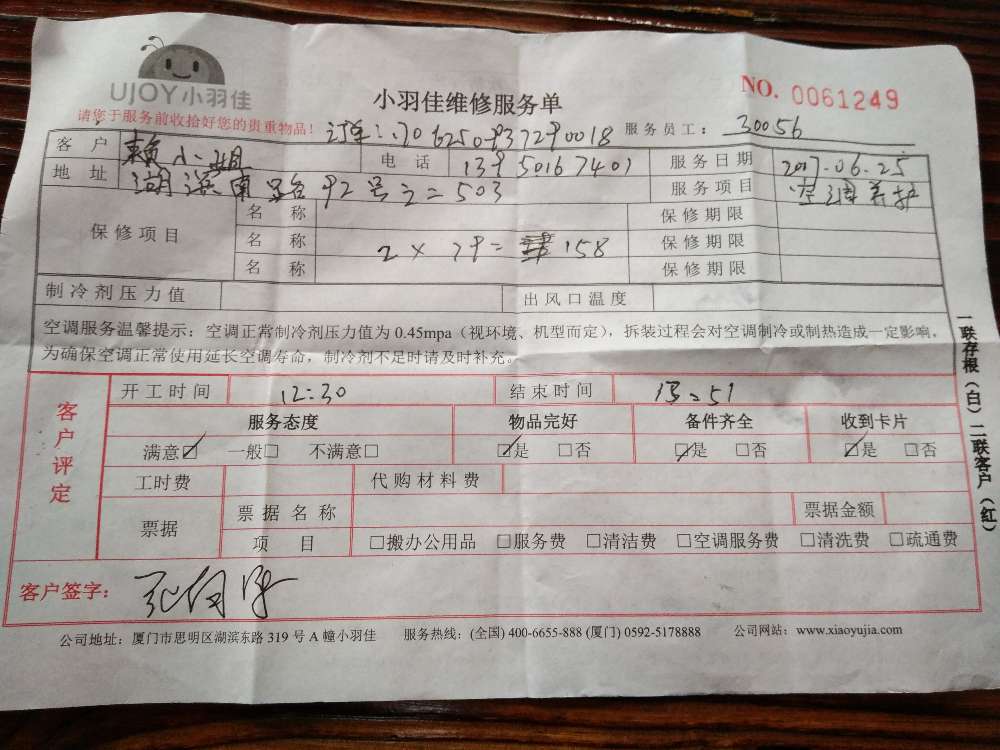 UJOY小羽佳
小羽佳维修服务单
NO. 0061249
请您于服务前收拾好您的贵重物品!
服务员工: 30056
客户 赖小姐 电话 服务日期 2017.06.25
地址 湖滨南 503 服务项目 空调养护
保修项目 名称 保修期限
名称 2 × 79 = 158 保修期限
名称 保修期限
制冷剂压力值 出风口温度
空调服务温馨提示:空调正常制冷剂压力值为0.45mpa(视环境、机型而定),拆装过程会对空调制冷或制热造成一定影响,
为确保空调正常使用延长空调寿命,制冷剂不足时请及时补充。
客户评定
开工时间 12:30 结束时间
服务态度 物品完好 备件齐全 收到卡片
满意☑ 一般□ 不满意□ ☑是 □否 ☑是 □否 ☑是 □否
工时费 代购材料费
票据 票据名称 票据金额
项目 □搬办公用品 □服务费 □清洁费 □空调服务费 □清洗费 □疏通费
客户签字:
一联存根(白)二联客户(红)
公司地址:厦门市思明区湖滨东路319号A幢小羽佳 服务热线:(全国) 400-6655-888 (厦门) 0592-5178888 公司网站:www.xiaoyujia.com